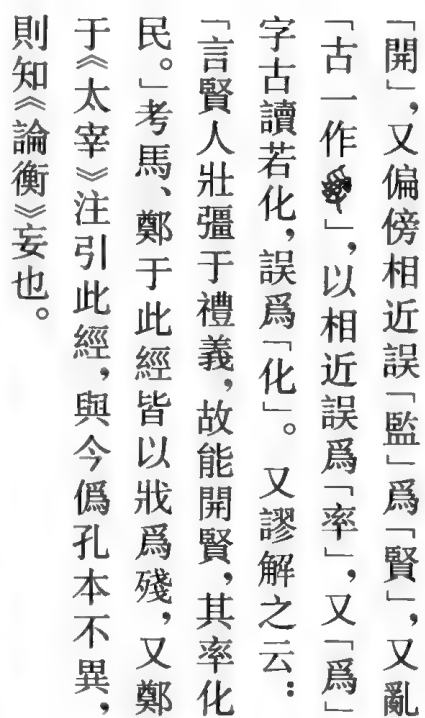 「開」，又偏傍相近誤「監」爲「賢」，又亂
「古一作」，以相近誤爲「率」，又「爲」
字古讀若化，誤爲「化」。又謬解之云：
「言賢人壯彊于禮義，故能開賢，其率化
民。」考馬、鄭于此經皆以戕爲殘，又鄭
于《太宰》注引此經，與今僞孔本不異，
則知《論衡》妄也。